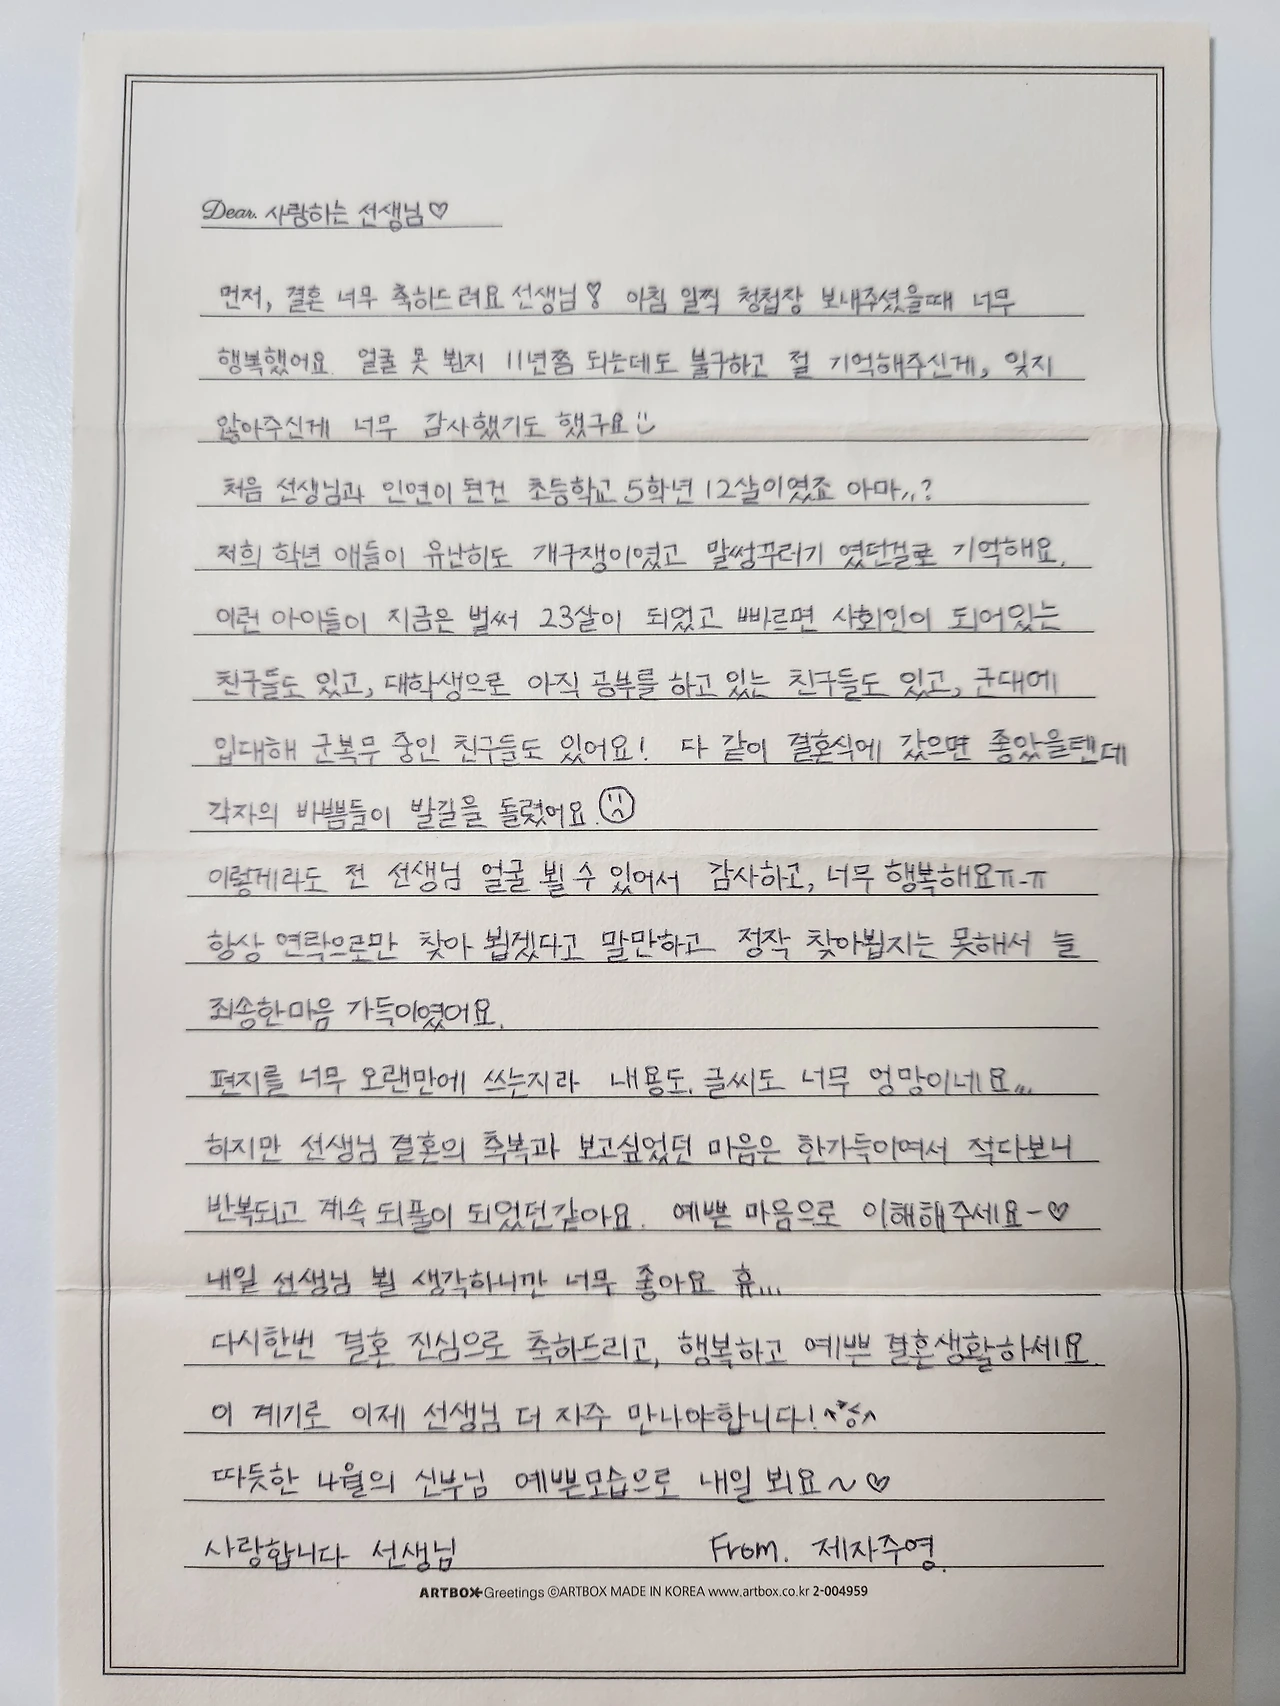 Dear. 사랑하는 선생님♡
먼저, 결혼 너무 축하드려요 선생님♡ 아침 일찍 청첩장 보내주셨을때 너무
행복했어요. 얼굴 못 뵌지 11년쯤 되는데도 불구하고 절 기억해주신게, 잊지
않아주신게 너무 감사했기도 했구요
처음 선생님과 인연이 된건 초등학교 5학년 12살이였죠 아마,,?
저희 학년 애들이 유난히도 개구쟁이였고 말썽꾸러기 였던걸로 기억해요.
이런 아이들이 지금은 벌써 23살이 되었고 빠르면 사회인이 되어있는
친구들도 있고, 대학생으로 아직 공부를 하고 있는 친구들도 있고, 군대에
입대해 군복무 중인 친구들도 있어요! 다 같이 결혼식에 갔으면 좋았을텐데
각자의 바쁨들이 발길을 돌렸어요.
이렇게라도 전 선생님 얼굴 뵐 수 있어서 감사하고, 너무 행복해요ㅠ-ㅠ
항상 연락으로만 찾아 뵙겠다고 말만하고 정작 찾아뵙지는 못해서 늘
죄송한마음 가득이였어요.
편지를 너무 오랜만에 쓰는지라 내용도, 글씨도 너무 엉망이네요,,,
하지만 선생님 결혼의 축복과 보고싶었던 마음은 한가득이여서 적다보니
반복되고 계속 되풀이 되었던같아요. 예쁜 마음으로 이해해주세요-♡
내일 선생님 뵐 생각하니깐 너무 좋아요 휴...
다시한번 결혼 진심으로 축하드리고, 행복하고 예쁜 결혼생활하세요.
이 계기로 이제 선생님 더 자주 만나야합니다!
따듯한 4월의 신부님 예쁜모습으로 내일 뵈요~♡
사랑합니다 선생님 From. 제자주영.
ARTBOX Greetings ©ARTBOX MADE IN KOREA www.artbox.co.kr 2-004959